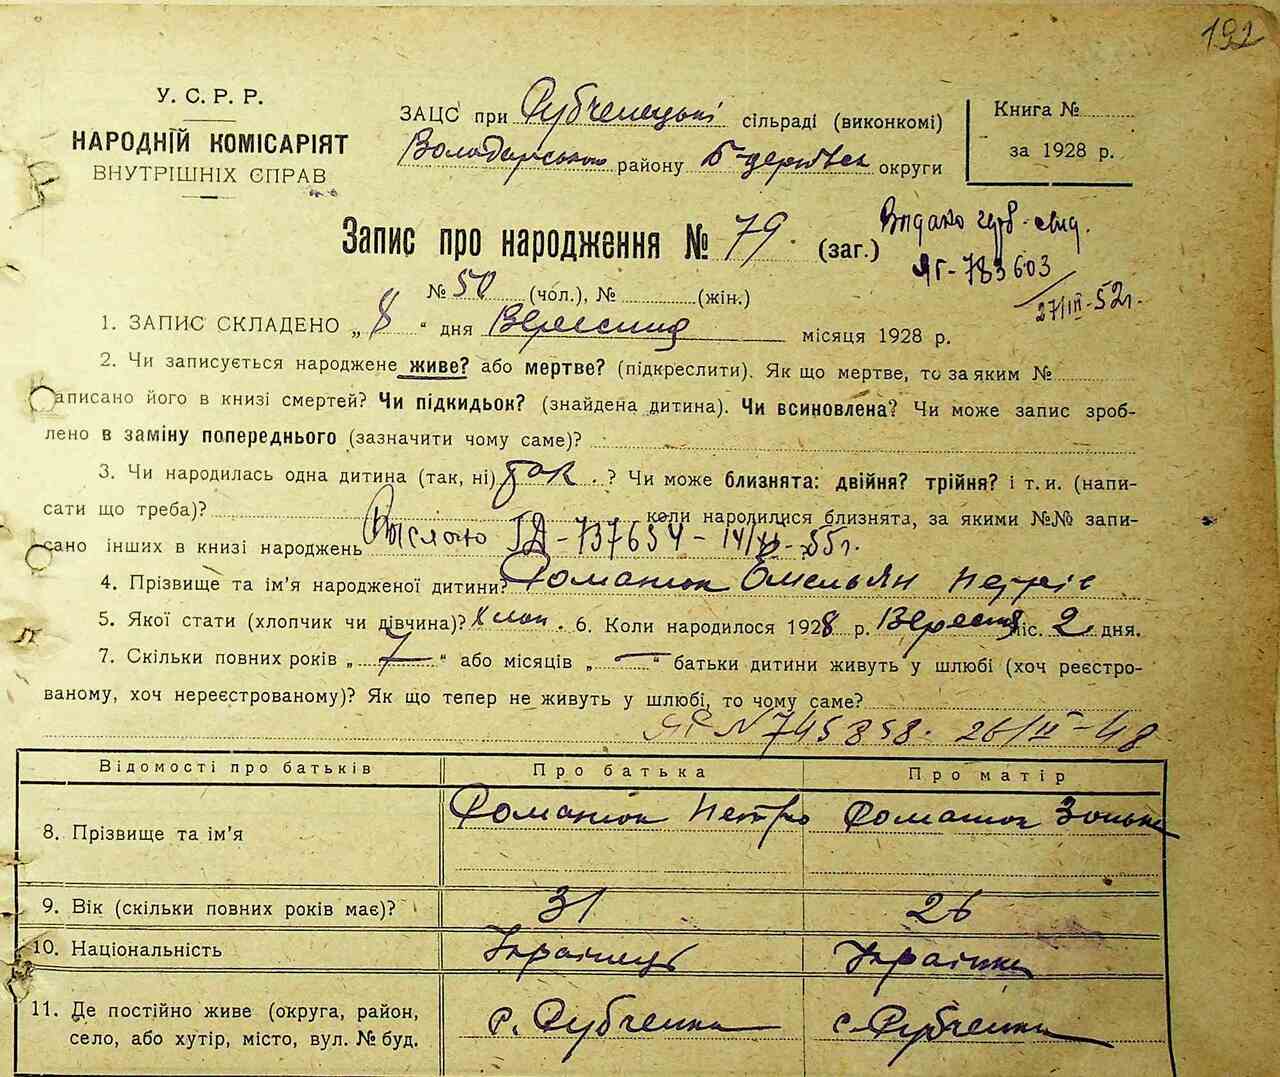 192
У. С. Р. Р.
НАРОДНІЙ КОМІСАРІЯТ
ВНУТРІШНІХ СПРАВ
ЗАЦС при Рубченецькі сільраді (виконкомі)
Володарського району Б-церківськ округи
Книга №
за 1928 р.
Запис про народження № 79. (заг.)
Видано свид.
ЯГ-783603
27/III-52г.
№ 50 (чол.), № (жін.)
1. ЗАПИС СКЛАДЕНО „ 8 “ дня Вересня місяця 1928 р.
2. Чи записується народжене живе? або мертве? (підкреслити). Як що мертве, то за яким №
записано його в книзі смертей? Чи підкидьок? (знайдена дитина). Чи всиновлена? Чи може запис зроб-
лено в заміну попереднього (зазначити чому саме)?
3. Чи народилась одна дитина (так, ні) так . ? Чи може близнята: двійня? трійня? і т. и. (напи-
сати що треба)? коли народилися близнята, за якими №№ запи-
сано інших в книзі народжень Выслано 737654 - 55г.
4. Прізвище та ім’я народженої дитини? Романюк Омельян Петрів
5. Якої стати (хлопчик чи дівчина)? Хлоп . 6. Коли народилося 1928 р. Вересня міс. 2 дня.
7. Скільки повних років „ 7 “ або місяців „ — “ батьки дитини живуть у шлюбі (хоч реєстро-
ваному, хоч нереєстрованому)? Як що тепер не живуть у шлюбі, то чому саме?
N 745858. 26/II-48
Відомості про батьків Про батька Про матір
8. Прізвище та ім’я Романюк Петро Романюк Зонька
9. Вік (скільки повних років має)? 31 26
10. Національність Українець Українка
11. Де постійно живе (округа, район,
село, або хутір, місто, вул. № буд.
с. Рубченки с. Рубченки